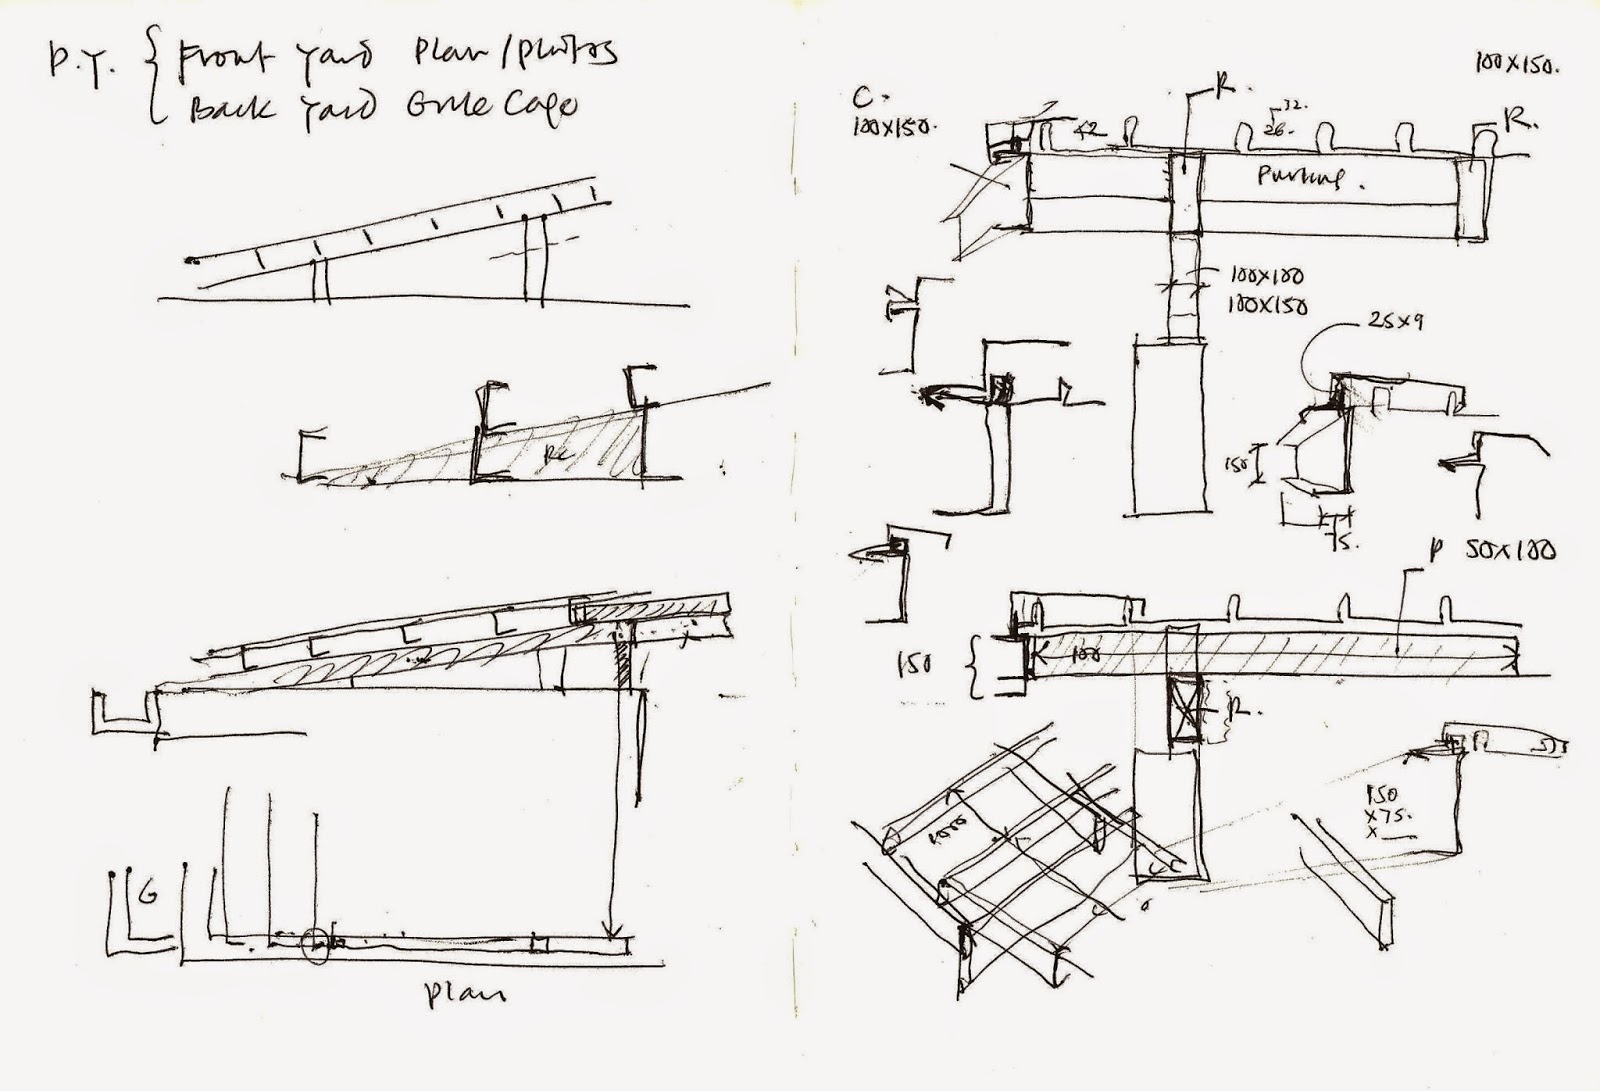 P.Y. { Front Yard Plan/photos
Back Yard Grille Cage
Plan
G
RC
100x150.
C.
100x150.
R.
42
32.
26.
R.
Purling.
100x100
100x150
25x9
150
75.
P 50x100
150
100
R.
1000
150
x75.
x